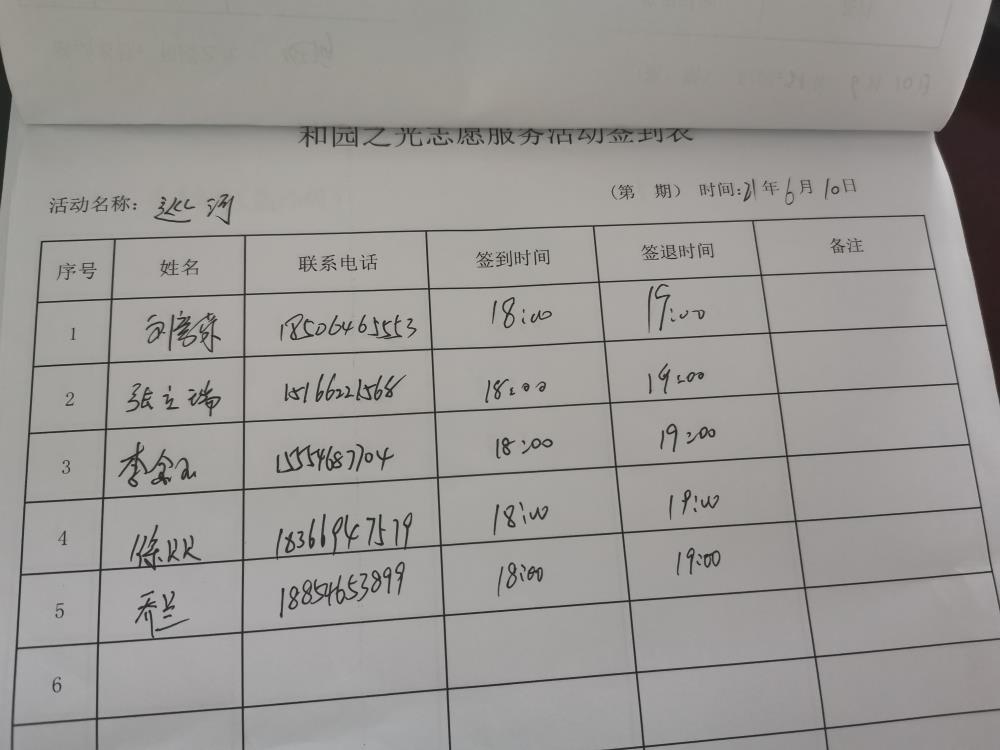 和园之光志愿服务活动签到表
活动名称：巡河 （第 期） 时间:21年6月10日
序号 姓名 联系电话 签到时间 签退时间 备注
1 18506465553 18:00 19:00
2 张立瑞 15166221568 18:00 19:00
3 李金玉 15554687704 18:00 19:00
4 徐以以 18366947579 18:00 19:00
5 乔兰 18854653899 18:00 19:00
6